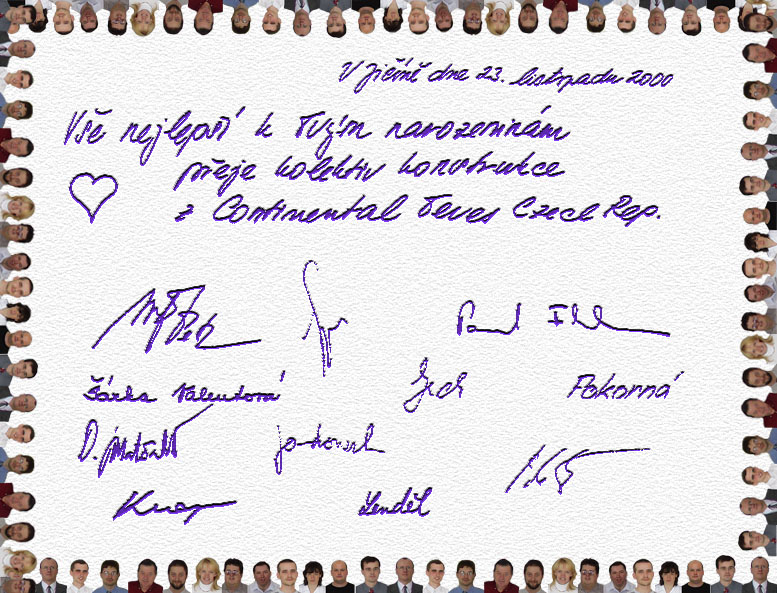 V Jičíně dne 23. listopadu 2000
Vše nejlepší k Tvým narozeninám
přeje kolektiv konstrukce
z Continental Teves Czech Rep.
Petr
Pavel
Šárka Valentová Zech Pokorná
D.
Lenděl